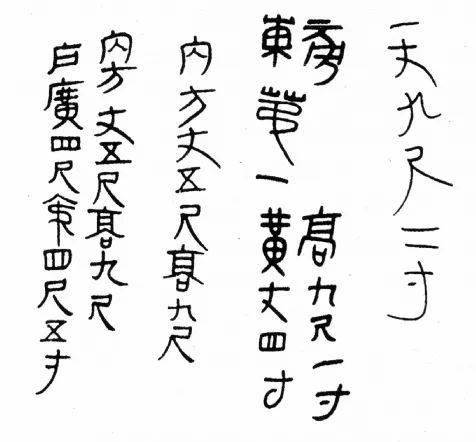 一丈九尺二寸
高九尺一寸
東弟一黃丈四寸
內方丈五尺高九尺
內方丈五尺高九尺
廣四尺四尺五寸